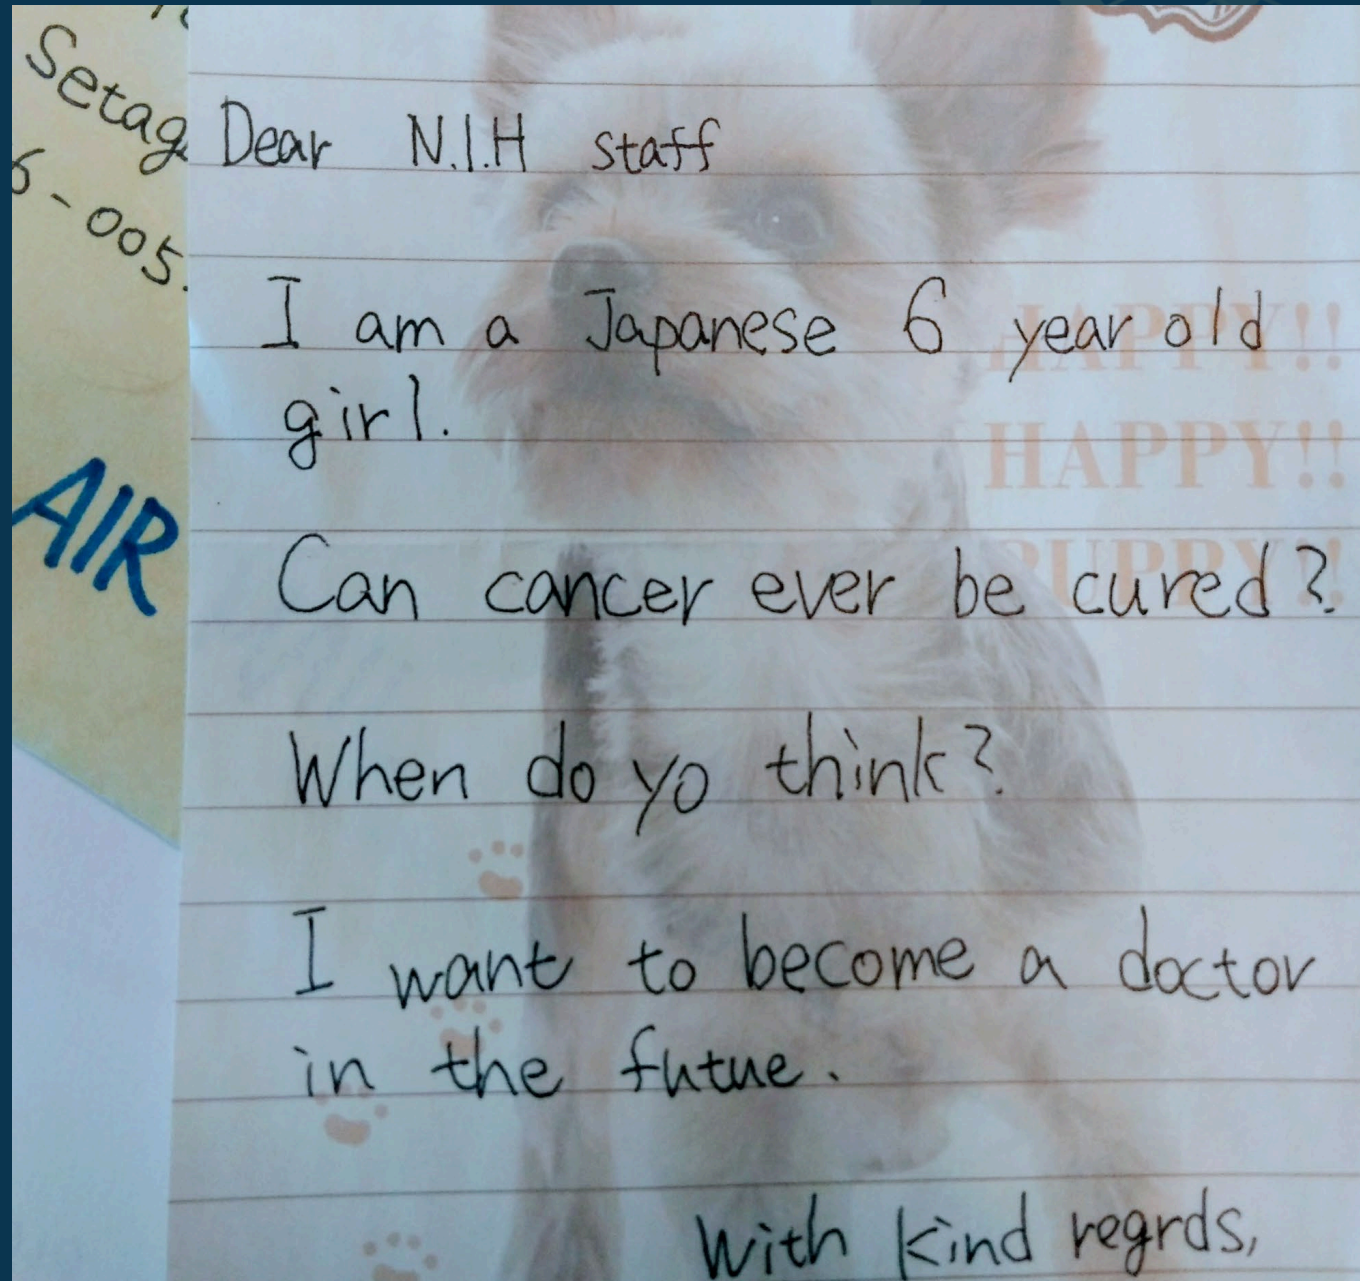 Setag
6-005.
AIR
Dear N.I.H staff
I am a Japanese 6 year old
girl.
Can cancer ever be cured?
When do yo think?
I want to become a doctor
in the futue.
With kind regrds,
HAPPY!!
HAPPY!!
PUPPY!!